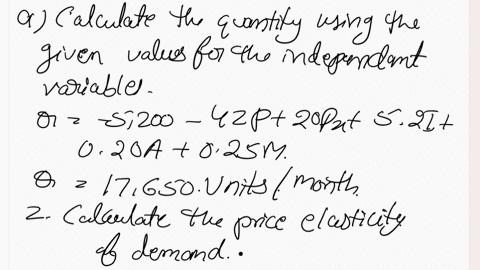 a) Calculate the quantity using the
given values for the independant
variable.
Q = -5,200 - 42P + 20Px + 5.2I +
0.20A + 0.25M.
Q = 17,650. Units / month
2. Calculate the price elasticity
of demand.